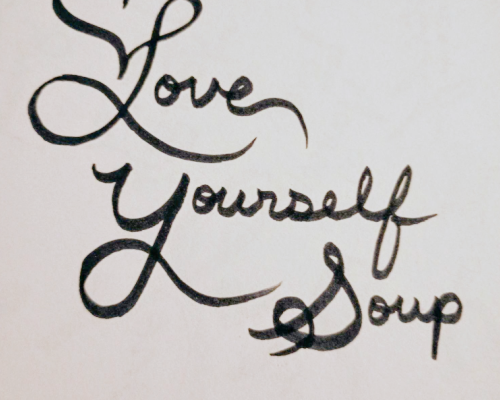 Love
Yourself
Soup